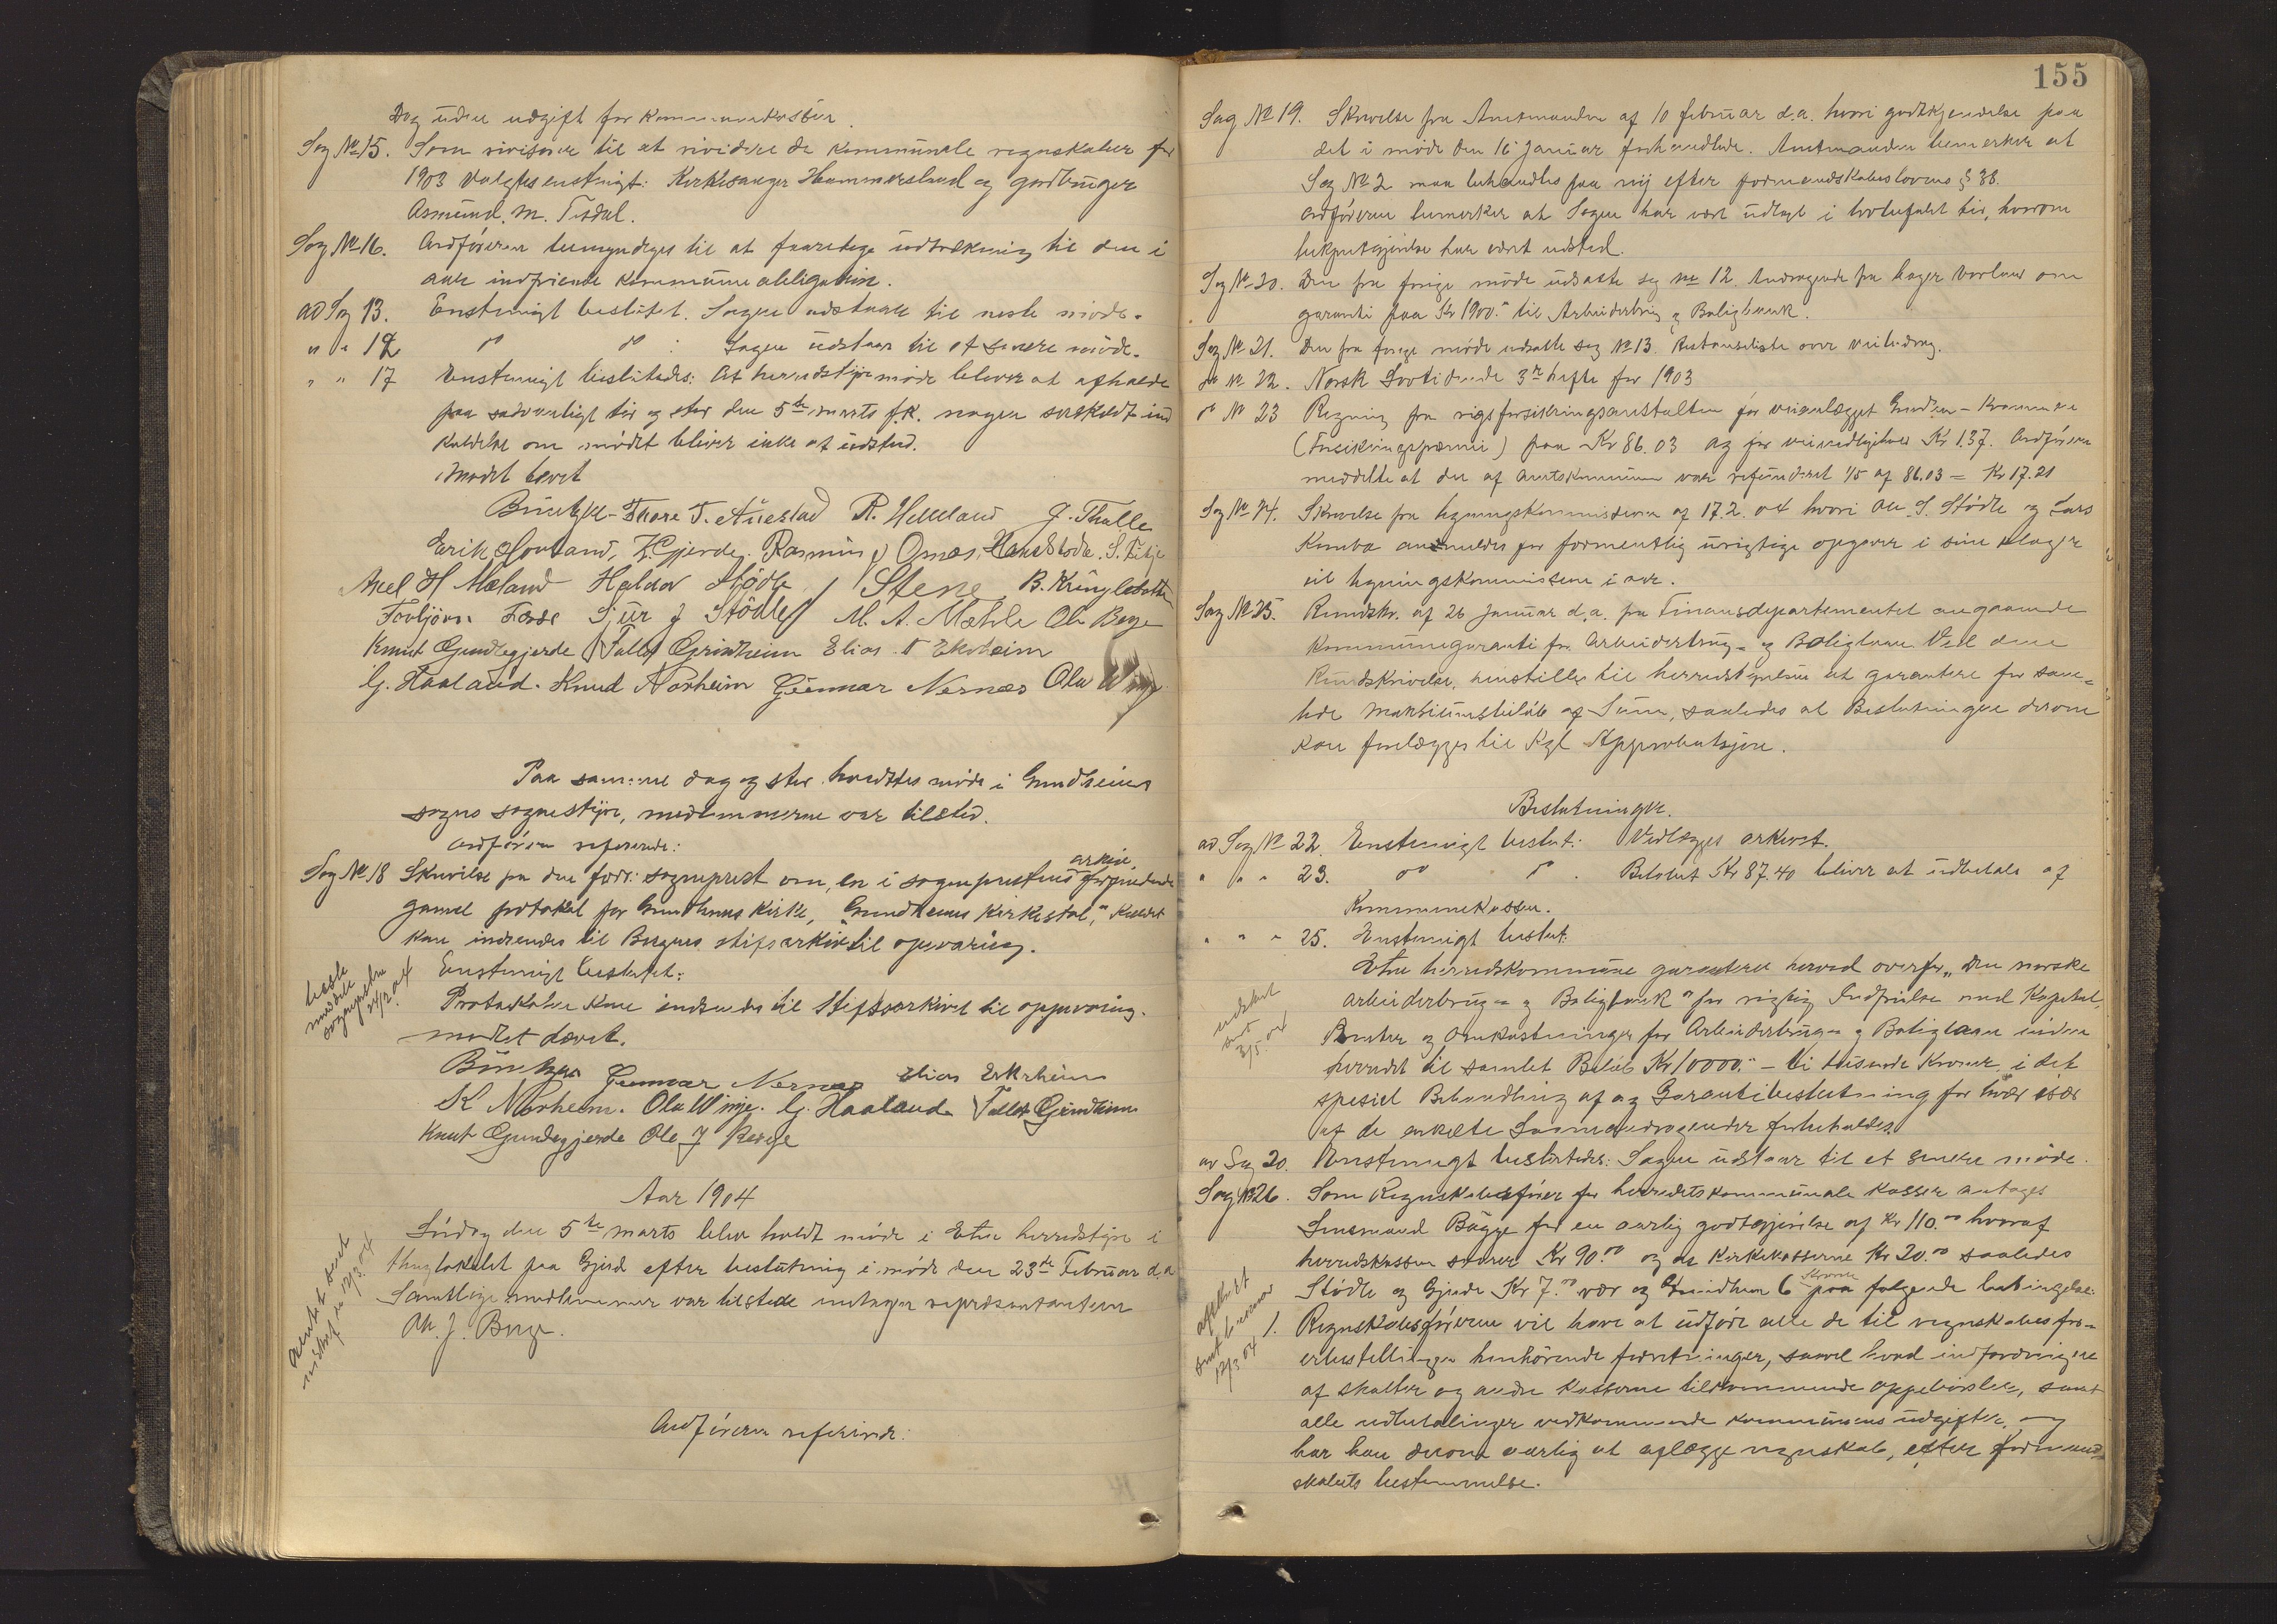 Dog uden udgift for kommunekassen.
Sag No 15. Som revisorer til at revidere de kommunale regnskaber for
1903 valgtes enstemigt: Kirkesanger Hammersland og gardbruger
Asmund M. Tesdal.
Sag No 16. Ordføreren bemyndiges til at foaretage udtrækning til den i
aar indfriende kommuneobligation.
ad Sag 13. Enstemigt besluttet. Sagen udstaar til neste møde.
" " 12 do do : Sagen udstaar til et senere møde.
" " 17 Enstemigt besluttedes: At herredstyremøde bliver at afholde
paa sædvanligt tid og sted den 5te marts f.k. nogen serskildt ind
kaldelse om mødet bliver ikke at udsted.
Mødet hævet
Buntzen Thore T. Auestad R. Helleland J. Thalle
Erik Hovland, K. Gjerde. Rasmus J Osnes, Hans Stole. S. Fitje
Axel H Mæland Haldor Stødle / Stene B. Kringlebotten
Torbjørn Førde Sjur J Stødle M. A. Mæhle Ole Berge
Knut Grindegjerde Tallef Grindheim Elias T Ekrheim
G. Haaland. Knud Norheim Gunnar Nernæs Ola Winje
Paa samme dag og sted holdttes møde i Grindheims
sogns sognestyre, medlemmerne var tilsted.
Ordføren refererede:
Sag No 18 Skrivelse fra den forr: sogneprest om, en i sogneprestens arkiv forefindende
gamel protokol for Grindheims Kirke, "Grindheims Kirkestol," kaldet
kan indsendes til Bergens stifsarkiv til opevaring.
Enstemigt besluttet:
Protokollen kan indsendes til Stiftsarkivet til oppevaring.
mødet hævet.
Buntzen Gunnar Nernæs Elias Ekrheim
K Norheim. Ola Winje. G. Haaland. Tallef Grindheim
Knut Grindegjerde Ole J Berge
meddelt
sognepresten
24/2 04
Aar 1904
Lørdag den 5te marts blev holdt møde i Etne herredstyre i
thinglokalet paa Gjerde efter beslutning i møde den 23de Februar d.a
Samtlige medlemmer var tilstede undtagen repræsentanten
Ole J. Berge.
Ordføreren refererede:
155
Sag No 19. Skrivelse fra Amtmanden af 10 februar d.a. hvori godkjendelse paa
det i møde den 16 Januar forhandlede. Amtmanden bemerker at
Sag No 2 maa behandles paa ny efter formandskabslovens § 38.
Ordføreren bemerker at Sagen har vert udlagt i lovbefalet tid, hvorom
bekjentgjørelse har været udsted.
Sag No 20. Den fra forige møde udsatte sag no 12. Andragende fra om
garanti paa Kr 1900.- til Arbeiderbrug og Boligbank.
Sag No 21. Den fra forige møde udsatte sag No 13. Restanseliste over veibidrag.
do No 22. Norsk Lovtidende 3die hefte for 1903
do No 23 Regning fra rigsforsikringsanstalten for veianlægget Grindheim - Krammene
(Forsikringspræmie) paa Kr 86.03 og for veivedligehold Kr 1.37. Ordføreren
meddelte at der af amtskommunen var refunderet 1/5 af 86.03 = Kr 17.21
Sag No 24. Skrivelse fra ligningskommisionen af 17.2.04 hvori Ole S. Stødle og Lars
anmeldes for formentlig urigtige opgaver i sine klager
til ligningskommissionen i aar.
Sag No 25. Rundskr. af 26 Januar d.a. fra Finansdepartementet angaaende
kommunegaranti for Arbeiderbrug- og Boliglaan. Ved denne
Rundskrivelse, henstilles til herredstyrelsen at garantere for sam-
lede maksimumsbeløb af Summ, saaledes at Beslutningen derom
kan forelægges til Kgl Approbatsjon.
Beslutninger.
ad Sag No 22. Enstemigt beslut: Vedlegges arkivet.
" " " 23. do do . Beløbet Kr 87.40 bliver at udbetale af
Kommunekassen.
" " " 25. Enstemigt beslut:
Etne herredskommune garanterer herved overfor "Den norske
Arbeiderbrug- og Boligbank" for rigtig Indfrielse med Kapital,
Renter og Omkostninger for Arbeiderbrug- og Boliglaan inden
herredet til samlet Beløb Kr 10000.- ti tusinde Kroner, i det
spesiel Behandling af og Garantibeslutning for hvær især
af de enkelte Laaneandragender forbeholdes.
udskrift
sent
2/5.04
ad Sag 20. Enstemigt besluttedes: Sagen udstaar til et senere møde.
Sag No 26. Som Regnskabsfører for herredets kommunale kasser antages
Lensmand Bügge for en aarlig godtgjørelse af Kr 110.00 hvoraf
herredskassen svarer Kr 90.00 og de kirkekasserne Kr 20.00 saaledes
Stødle og Gjerde Kr 7.00 vær og Grindheim 6 Kroner paa følgende betingelse:
1. Regnskabsføreren vil have at udføre alle de til regnskabsfør-
erbestillingen henhørende forretninger, saavel hvad indfordringen
af skatter og andre kasserne tilkommende oppebørsler, samt
alle udbetalinger vedkommende kommunens udgifter, og
har han derom aarlig at aflægge regnskab, efter formand-
skabets bestemmelse.